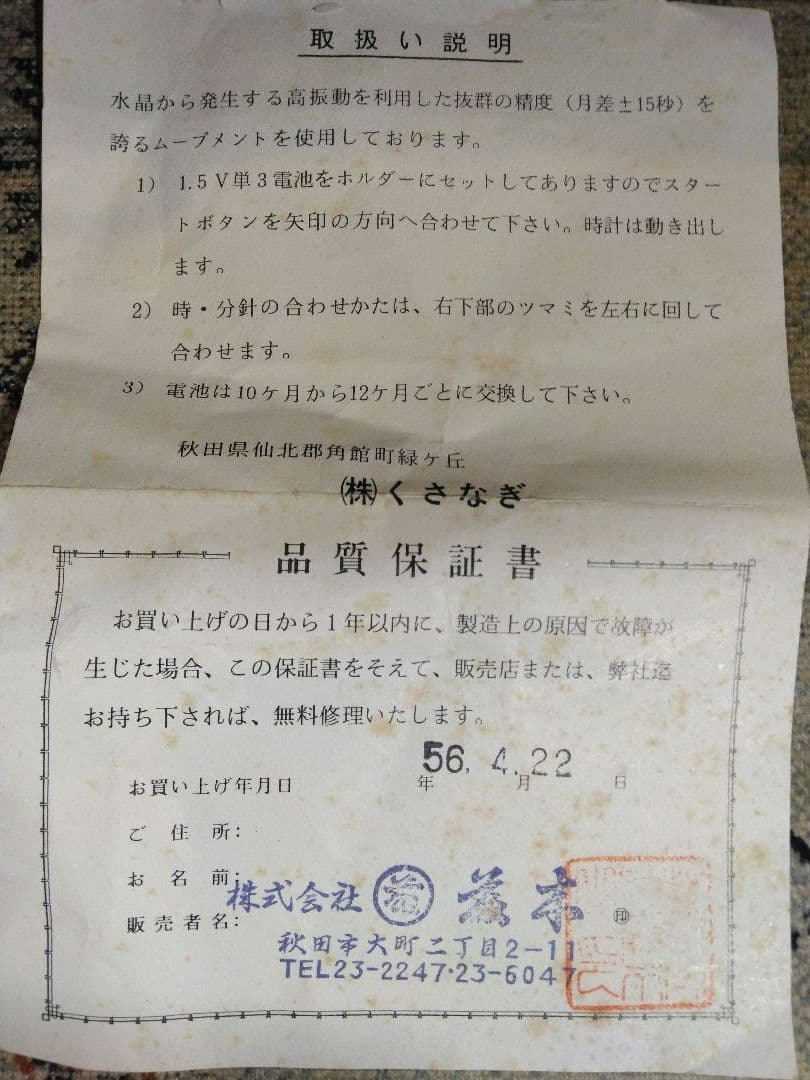 取扱い説明
水晶から発生する高振動を利用した抜群の精度（月差±15秒）を
誇るムーブメントを使用しております。
1） 1.5V単3電池をホルダーにセットしてありますのでスター
トボタンを矢印の方向へ合わせて下さい。時計は動き出し
ます。
2） 時・分針の合わせかたは、右下部のツマミを左右に回して
合わせます。
3） 電池は10ヶ月から12ヶ月ごとに交換して下さい。
秋田県仙北郡角館町緑ヶ丘
㈱くさなぎ
品質保証書
お買い上げの日から1年以内に、製造上の原因で故障が
生じた場合、この保証書をそえて、販売店または、弊社迄
お持ち下されば、無料修理いたします。
お買い上げ年月日 56.年 4.月 22日
ご住所：
お名前：
販売者名： 株式会社 ㊞
秋田市大町二丁目2-11
TEL23-2247·23-6047